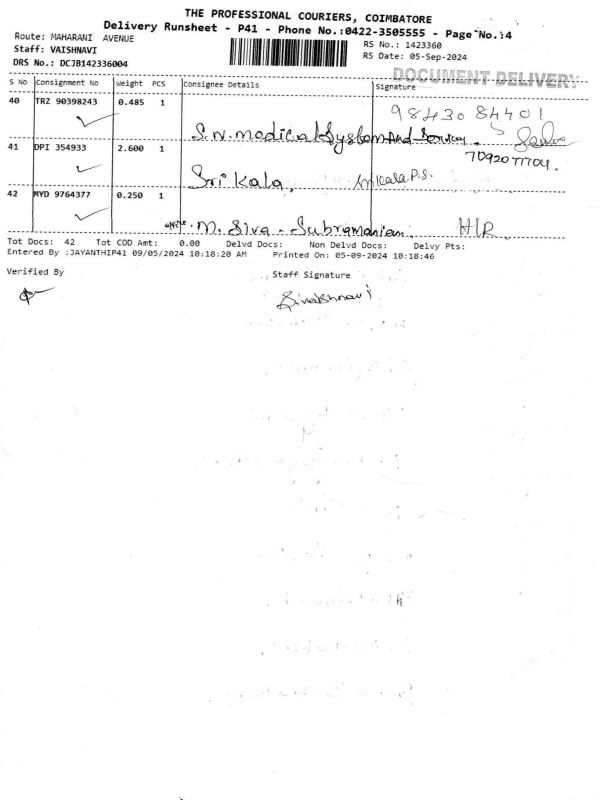 THE PROFESSIONAL COURIERS, COIMBATORE
Delivery Runsheet - P41 - Phone No.:0422-3505555 - Page No.:4
Route: MAHARANI AVENUE
RS No.: 1423360
Staff: VAISHNAVI
RS Date: 05-Sep-2024
DRS No.: DCJB142336004
DOCUMENT DELIVERY
S NO Consignment No Weight PCS Consignee Details Signature
40 TRZ 90398243 0.485 1
98430 84401
S.N. medical System And Service.
41 DPI 354933 2.600 1
7092077704.
Sri Kala, Srikala P.S.
42 MYD 9764377 0.250 1
M. Siva. Subramanian. H/R
Tot Docs: 42 Tot COD Amt: 0.00 Delvd Docs: Non Delvd Docs: Delvy Pts:
Entered By :JAYANTHIP41 09/05/2024 10:18:20 AM Printed On: 05-09-2024 10:18:46
Verified By Staff Signature